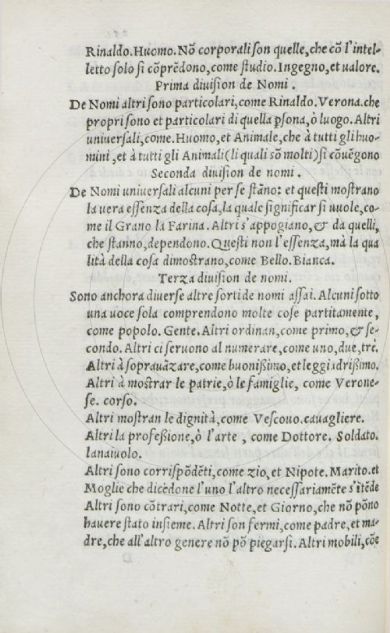 Rinaldo. Huomo. Nō corporali son quelle, che cō l'intel-
letto solo si cōprēdono, come studio. Ingegno, et ualore.
Prima diuision de Nomi.
De Nomi altri sono particolari, come Rinaldo. Verona. che
propri sono et particolari di quella psona, ò luogo. Altri
uniuersali, come. Huomo, et Animale, che à tutti gli huo-
mini, et à tutti gli Animali (li quali sō molti) si cōuēgono
Seconda diuision de nomi.
De Nomi uniuersali alcuni per se stāno: et questi mostrano
la uera essēnza della cosa, la quale significar si uuole, co-
me il Grano la Farina. Altri s'appogiano, & da quelli,
che stanno, dependono. Questi non l'essenza, mà la qua
lità della cosa dimostrano, come Bello. Bianca.
Terza diuision de nomi.
Sono anchora diuerse altre sorti de nomi assai. Alcuni sotto
una uoce sola comprendono molte cose partitamente,
come popolo. Gente. Altri ordinan, come primo, & se-
condo. Altri ci seruono al numerare, come uno, due, trè.
Altri à soprauāzare, come buonißimo, et leggiadrißimo.
Altri à mostrar le patrie, ò le famiglie, come Verone-
se. corso.
Altri mostran le dignità, come Vescouo. cauagliere.
Altri la profeßione, ò l'arte, come Dottore. Soldato.
lanaiuolo.
Altri sono corrispōdēti, come zio, et Nipote. Marito. et
Moglie che dicēdone l'uno l'altro necessariamēte s'itēde
Altri sono cōtrari, come Notte, et Giorno, che nō pōno
hauere stato insieme. Altri son fermi, come padre, et ma-
dre, che all'altro genere nō pō piegarsi. Altri mobili, cōe